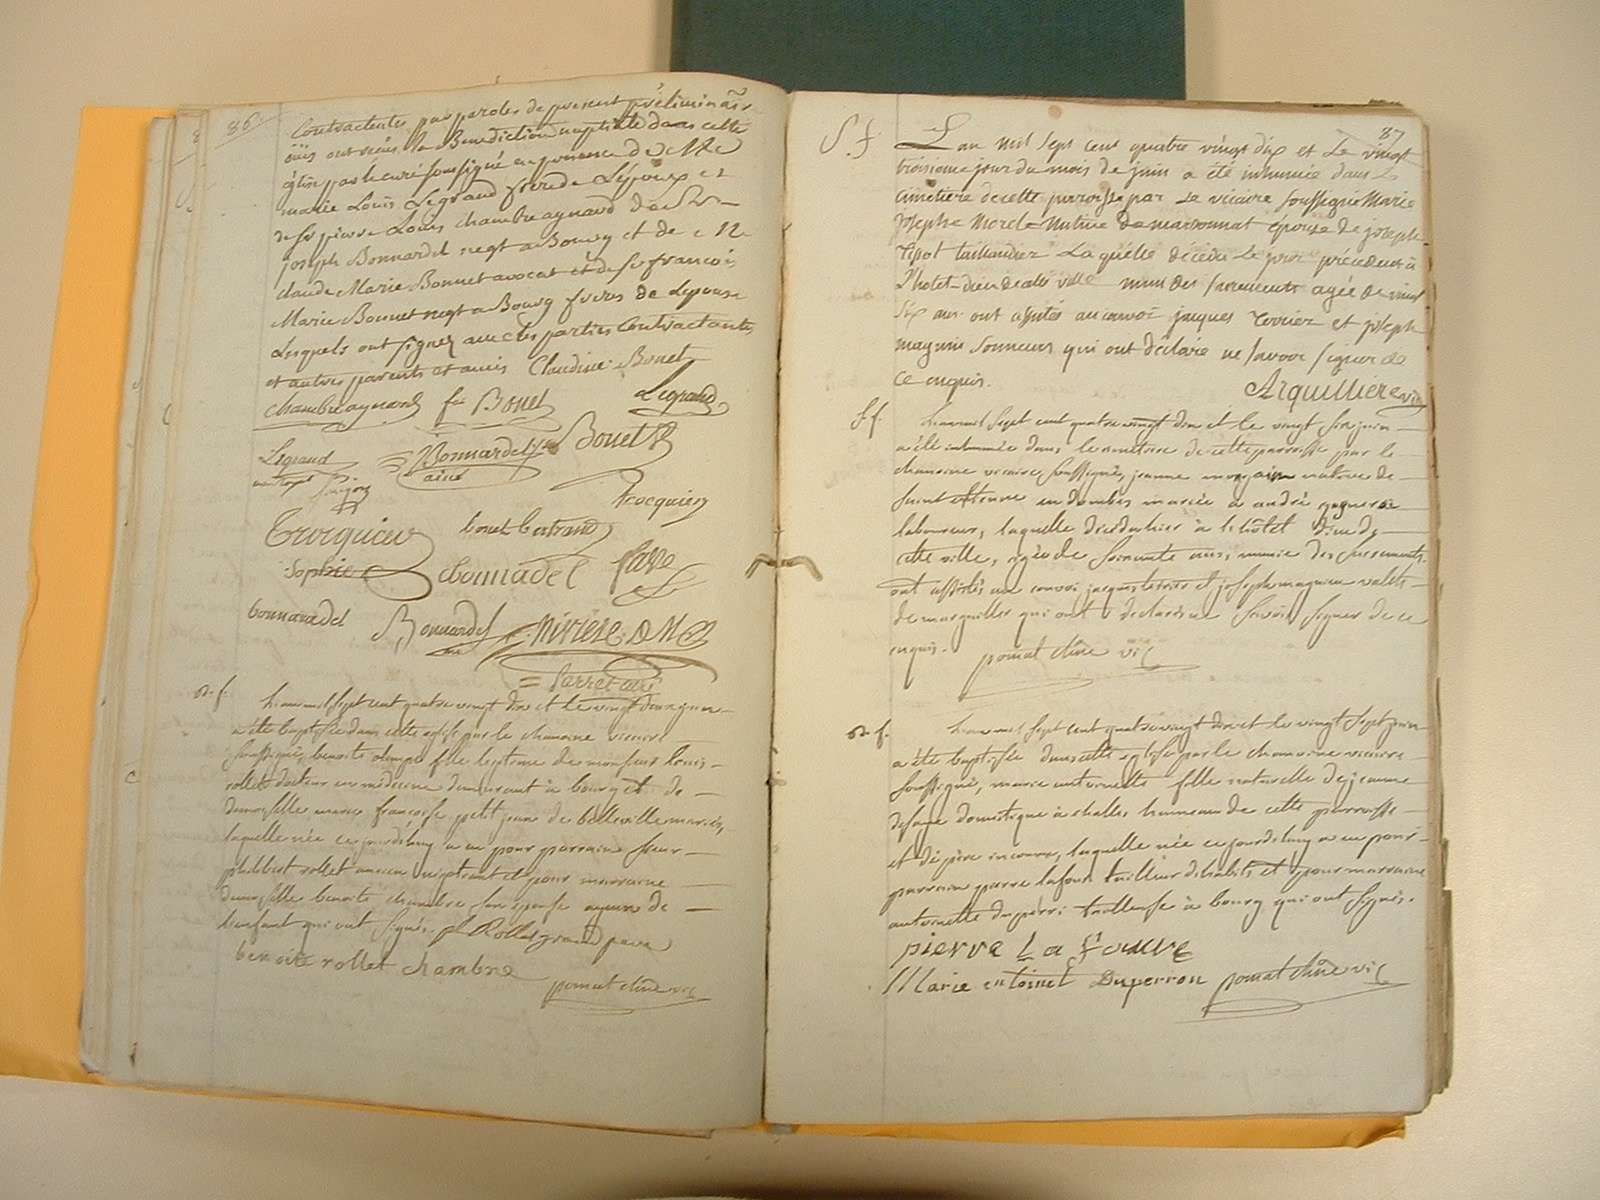 86
Contractentes par paroles de present préliminair
ouis ont reçus la Benediction nuptiale dans cette
église par le curé soussigné en presence de Mre
marie Louis Legrand frere de Lepoux et
de sr pierre Louis chambre aynard de Sr
joseph Bonnardel negt a Bourg et de Me
claude Marie Bonnet avocat et de sr francois
Marie Bonnet negt a Bourg freres de Lepouse
Lesquels ont signez avec les parties Contractantes
et autres parents et amis Claudine Bonet
Chambre aynard fs Bonet Legrand
Legrand Bonnardel Bouet
ainé
Trocquier
bonet bertrand
Sophie Bonnadel favre
bonnardel Bonnardel Rivière DM
Sarret curé
B. f.
L'an mil sept cent quatre vingt dix et le vingt deux juin
a été baptisée dans cette eglise par le chanoine vicaire
soussigné, benoite olimpe fille legitime de monsieur louis
rollet docteur en médecine demeurant à bourg et de
demoiselle marie françoise petit jean de belleville mariés,
laquelle née ce jourdhuy a eu pour parrain sieur
philibert rollet ancien négotiant et pour marraine
demoiselle benoite chambre son epouse ayeux de
l'enfant qui ont signés. ph Rollet grand pere
benoite rollet chambre
pomat chne vic
87
S. f.
L'an mil sept cent quatre vingt dix et Le vingt
troisieme jour du mois de juin a été inhumée dans Le
cimetiere de cette parroisse par Le vicaire soussigné Marie
josephe Morel Native de marsonnat épouse de joseph
tisot taillandier Laquelle décéda Le jour précédent à
L'hotel-dieu de cette ville munie des sacrements agée de vingt
six ans ont assistés au convoi jacques terrier et joseph
magnin sonneurs qui ont déclaré ne savoir signer de
ce enquis.
Arquilliere vic
S. f.
L'an mil sept cent quatre vingt dix et le vingt six juin
a été inhumée dans le cimetiere de cette parroisse par le
chanoine vicaire soussigné, jeanne morgain native de
saint etienne en dombes mariée à andré
laboureur, laquelle décéda hier à l'hôtel dieu de
cette ville, agée de soixante ans, munie des sacrements.
ont assistés au convoi jacques terrier et joseph magnin valets
de marguillier qui ont déclarés ne savoir signer de ce
enquis.
pomat chne vic
B. f.
L'an mil sept cent quatre vingt dix et le vingt sept juin
a été baptisée dans cette eglise par le chanoine vicaire
soussigné, marie antoinette fille naturelle de jeanne
desaye domestique à challes hameau de cette parroisse
et de père inconnu, laquelle née ce jourdhuy a eu pour
parrain pierre lafour tailleur d'habits et pour marraine
antoinette duperri tailleuse à bourg qui ont signés.
pierre La fourre
Marie entoinet Duperron pomat chne vic